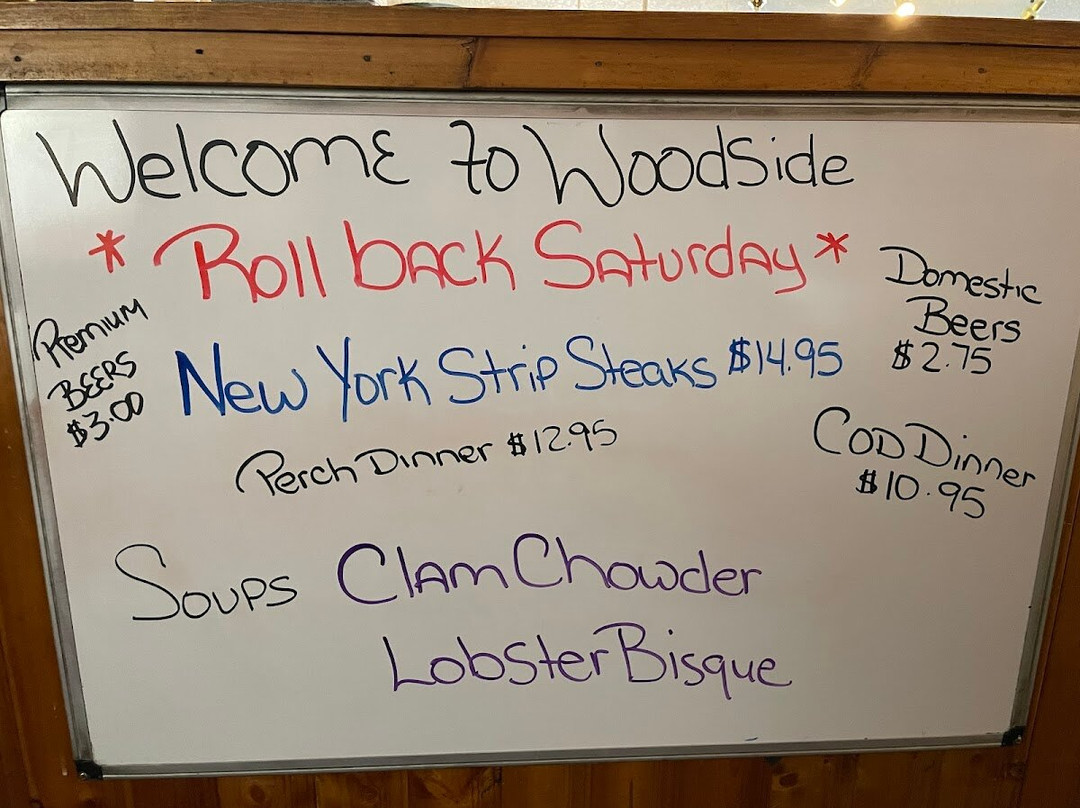 WelcomE to Woodside
* Roll back Saturday *
Premium
BEERS
$3.00
New York Strip Steaks $14.95
Domestic
Beers
$2.75
Perch Dinner $12.95
Cod Dinner
$10.95
Soups Clam Chowder
Lobster Bisque